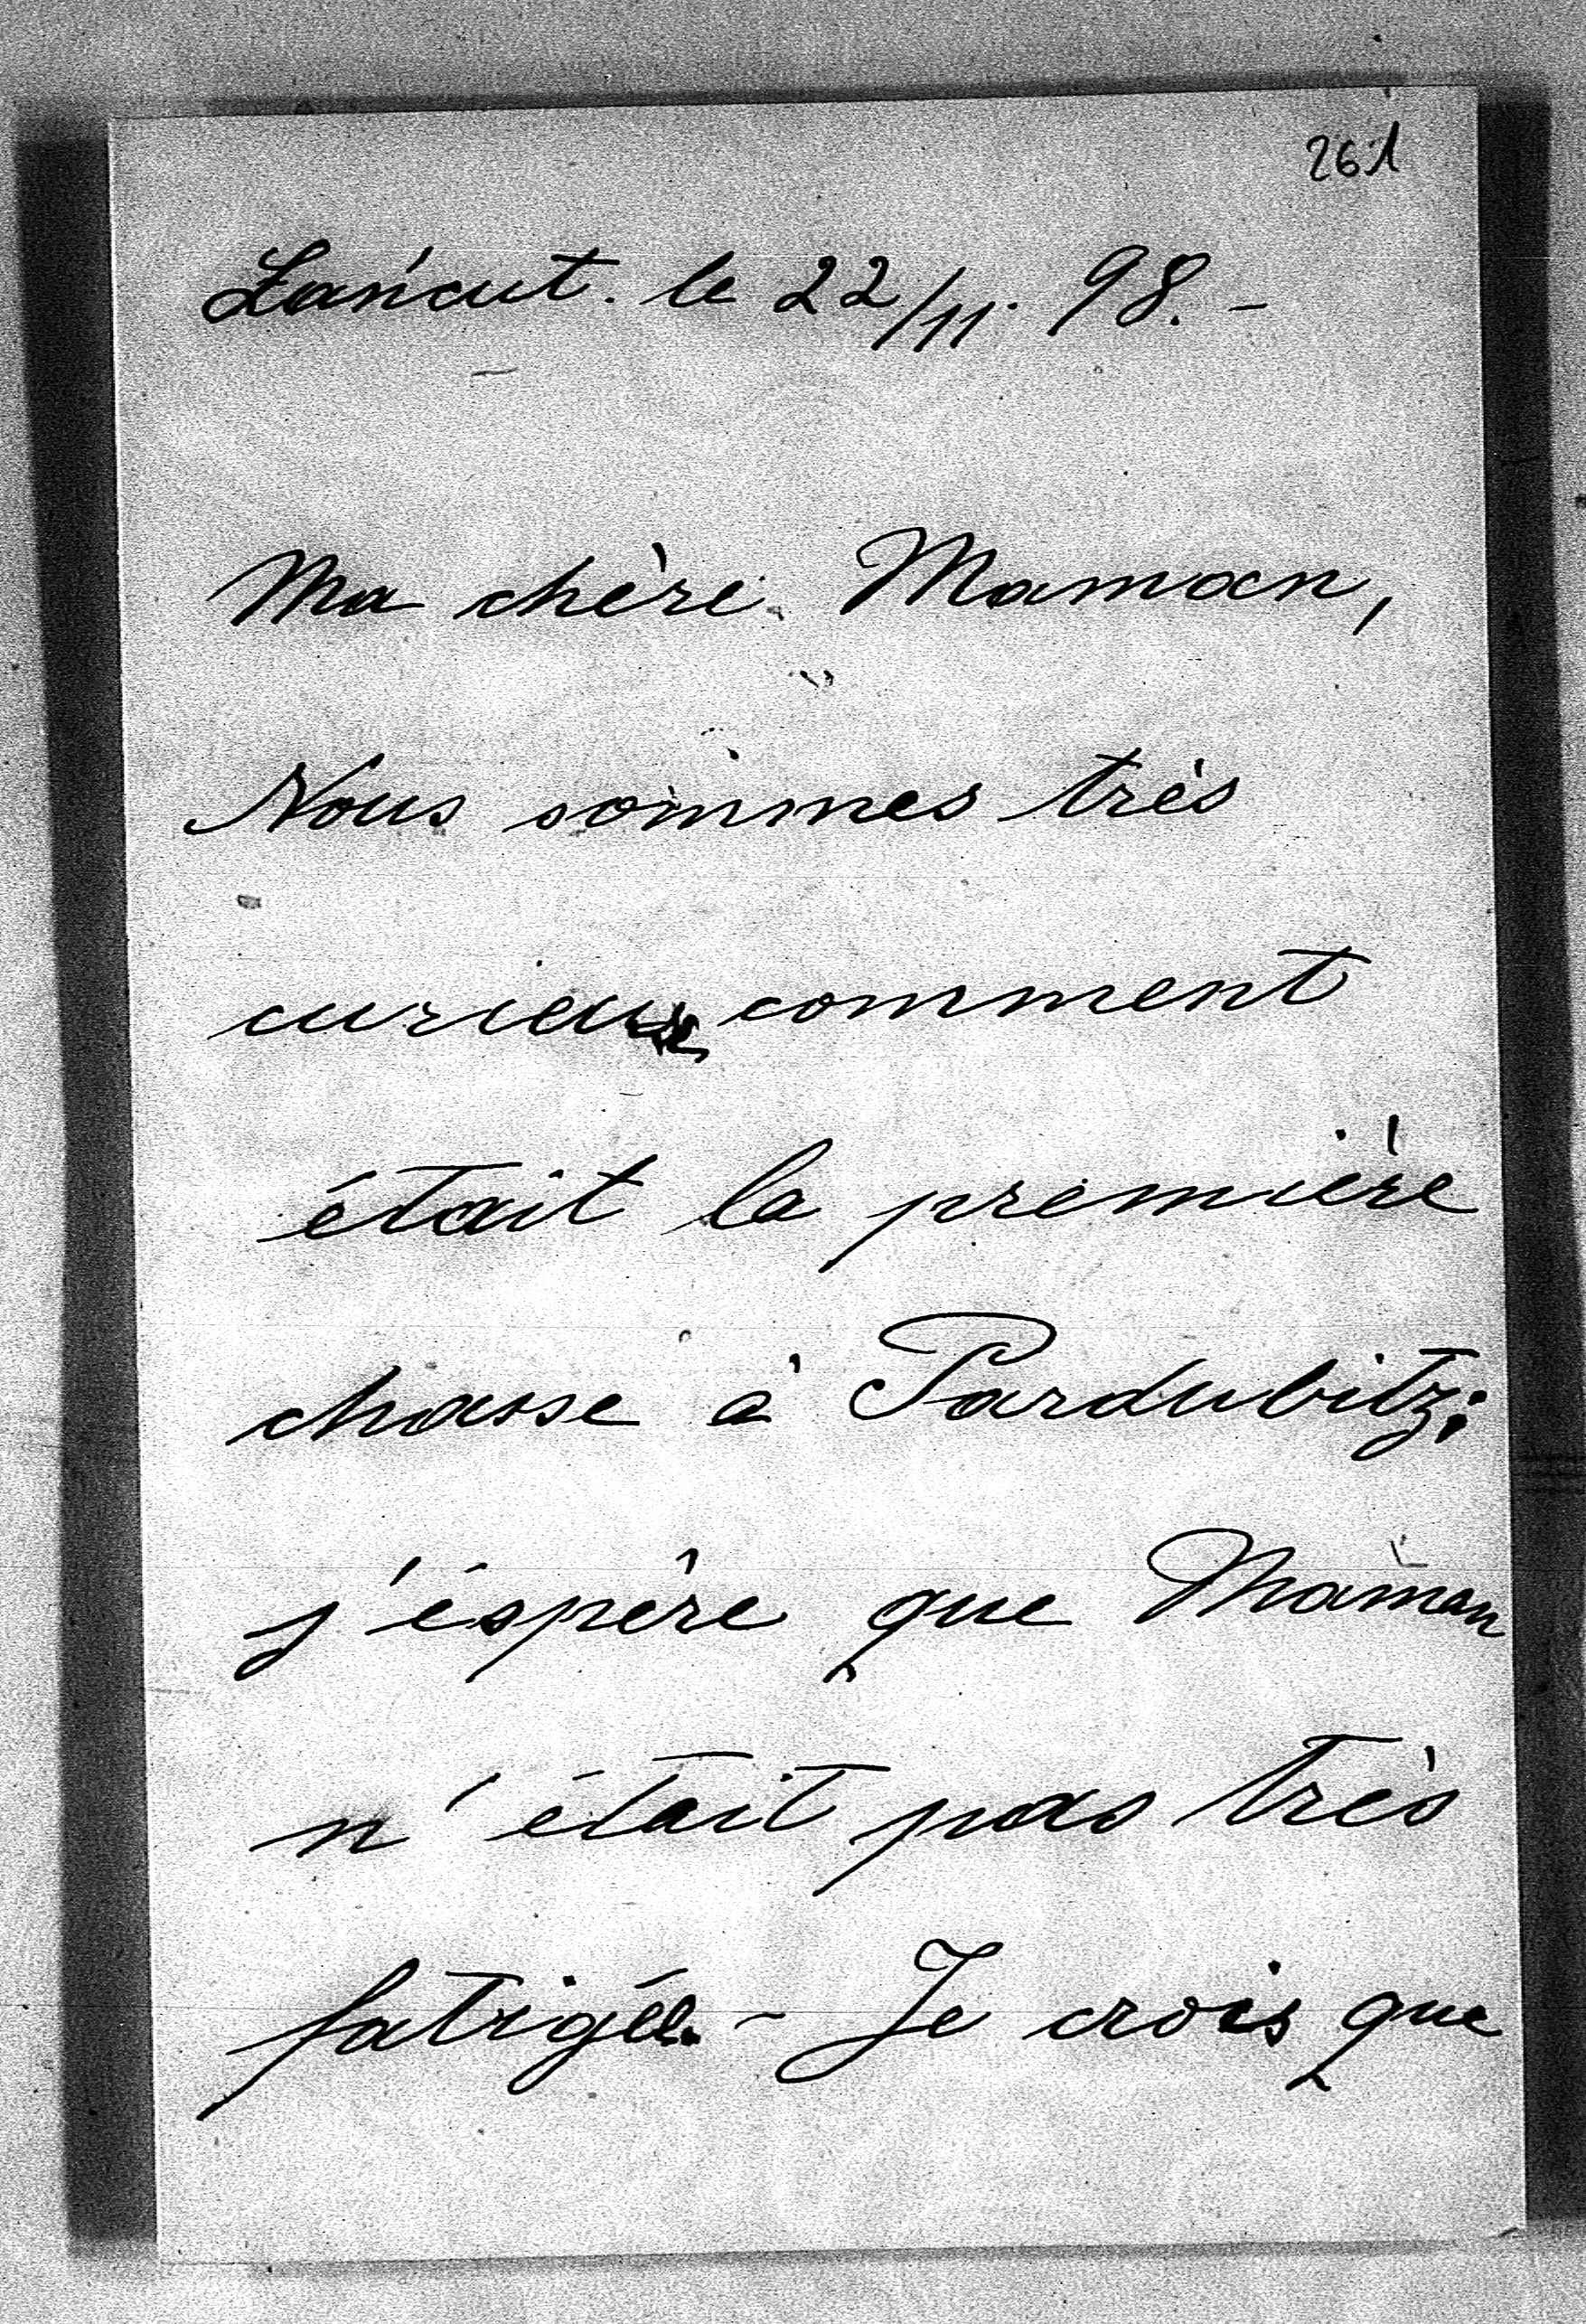 261
Łańcut. le 22/11. 98. -
Ma chère Maman,
Nous sommes très
curieux comment
était la première
chasse à Pardubitz;
j'éspère que Maman
n'était pas très
fatigée. - Je crois que